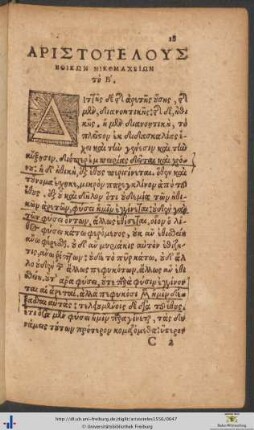 18
ΑΡΙΣΤΟΤΕΛΟΥΣ
ΗΘΙΚΩΝ ΝΙΚΟΜΑΧΕΙΩΝ
τὸ Β.
Διττῆς δὲ τῆς ἀρετῆς οὔσης, τῆς
μὲν, διανοητικῆς· τῆς δὲ, ἠθι-
κῆς, ἡ μὲν διανοητικὴ, τὸ
πλεῖον ἐκ διδασκαλίας ἔ-
χει καὶ τὴν γένεσιν καὶ τὴν
αὔξησιν. διόπερ ἐμπειρίας δεῖται καὶ χρόνου.
ἡ δ' ἠθικὴ, ἐξ ἔθους περιγίνεται. ὅθεν καὶ
τοὔνομα ἔσχηκε, μικρὸν παρεγκλῖνον ἀπὸ τοῦ
ἔθους. ἐξ οὗ καὶ δῆλον ὅτι οὐδεμία τῶν ἠθι-
κῶν ἀρετῶν, φύσει ἡμῖν ἐγγίνεται. οὐδὲν γὰρ
τῶν φύσει ὄντων, ἄλλως ἐθίζεται. οἷον ὁ λί-
θος φύσει κάτω φερόμενος, οὐκ ἂν ἐθισθείη
ἄνω φέρεσθαι. οὐδ' ἂν μυριάκις αὐτὸν ἐθίζῃ
τις ἄνω ῥιπτῶν· οὐδὲ τὸ πῦρ κάτω, οὐδ' ἄλ-
λο οὐδὲν ἄλλως πεφυκότων, ἄλλως ἂν ἐθι-
σθείη. οὔτ' ἄρα φύσει, οὔτε παρὰ φύσιν ἐγγίνον-
ται αἱ ἀρεταὶ. ἀλλὰ πεφυκόσι μὲν ἡμῖν δέξα-
σθαι αὐτὰς· τελειουμένοις δὲ διὰ τοῦ ἔθους.
ἔτι ὅσα μὲν φύσει ἡμῖν παραγίνεται, τὰς δυ-
νάμεις τούτων πρότερον κομιζόμεθα· ὕστερον
C 2
http://dl.ub.uni-freiburg.de/diglit/aristoteles1556/0047
© Universitätsbibliothek Freiburg